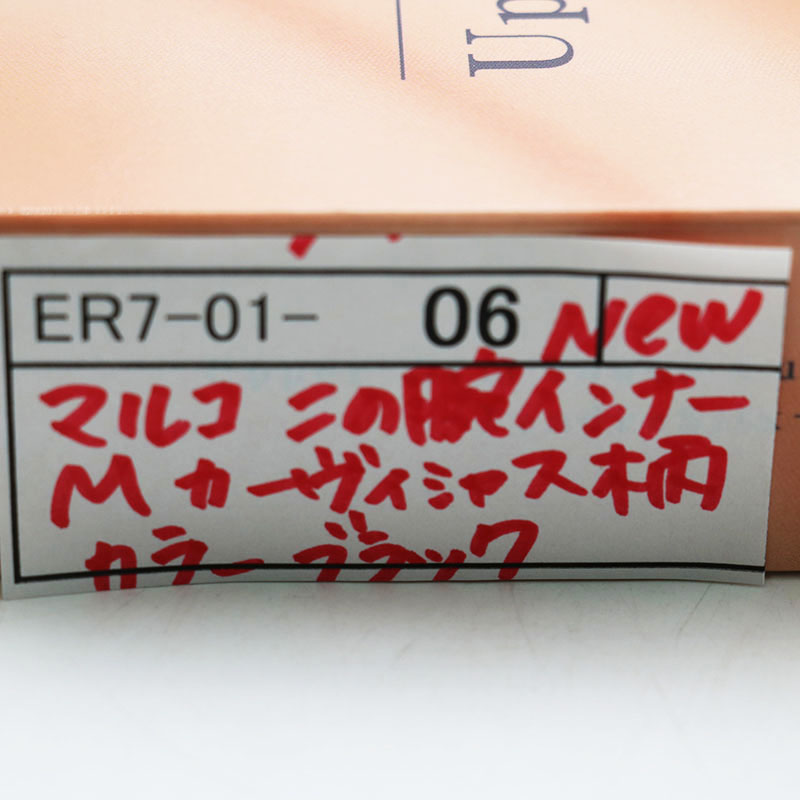 Up
ER7-01- 06 New
マルコ 二の腕インナー
M カーヴィシャス柄
カラー ブラック